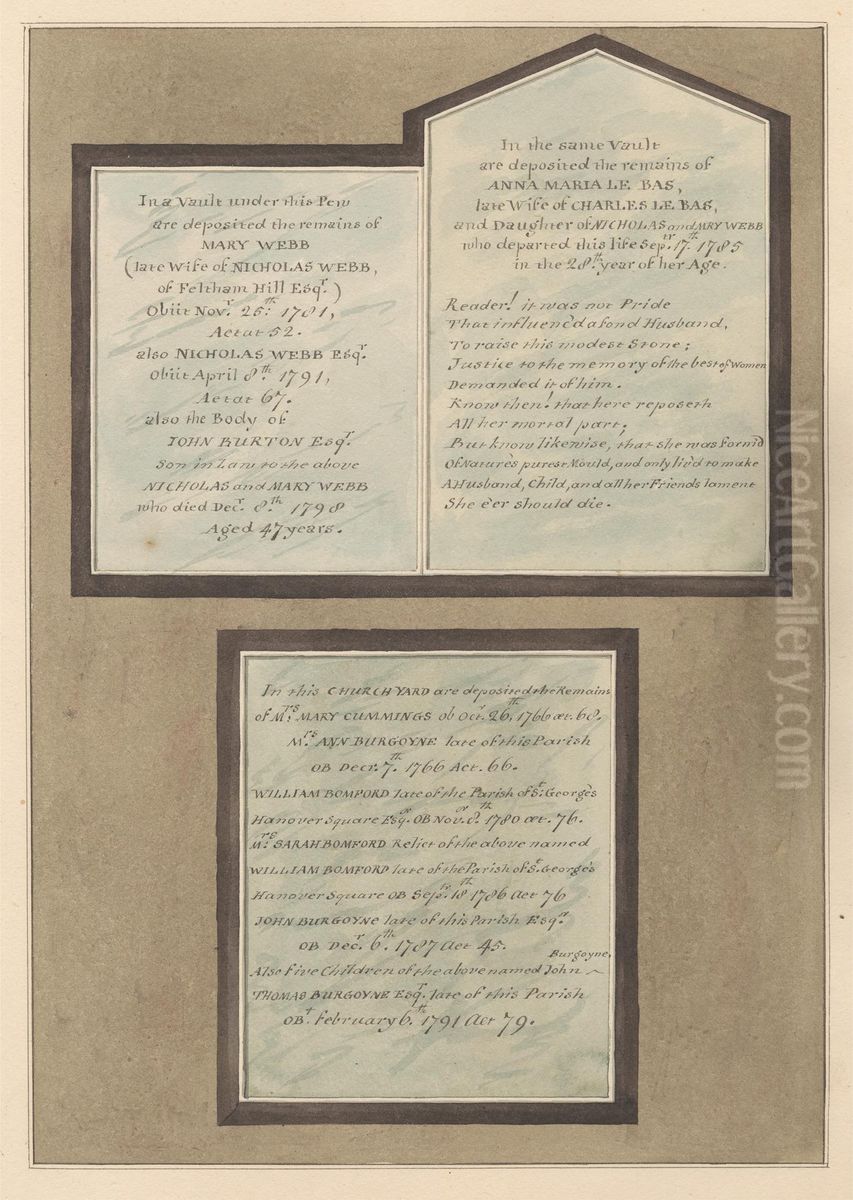 In a Vault under this Pew
are deposited the remains of
MARY WEBB
(late Wife of NICHOLAS WEBB,
of Feltham Hill Esqr.)
Obiit Novr. 25th: 1781,
Aetat 52.
also NICHOLAS WEBB Esqr.
Obiit April 8th. 1791,
Aetat 67.
also the Body of
JOHN BURTON Esqr.
Son in Law to the above
NICHOLAS and MARY WEBB
who died Decr. 8th. 1798
Aged 47 years.
In the same Vault
are deposited the remains of
ANNA MARIA LE BAS,
late Wife of CHARLES LE BAS,
and Daughter of NICHOLAS and MRY WEBB
who departed this life Septr. 17th. 1785
in the 28th. year of her Age.
Reader! it was not Pride
That influenc'd a fond Husband,
To raise this modest Stone;
Justice to the memory of the best of Women
Demanded it of him.
Know then! that here reposeth
All her mortal part;
But know likewise, that she was form'd
Of Nature's purest Mould, and only liv'd to make
A Husband, Child, and all her Friends lament
She e'er should die.
In this CHURCH YARD are deposited the Remains
of Mrs. MARY CUMMINGS ob Octr. 26th. 1766 æt. 68.
Mrs. ANN BURGOYNE late of this Parish
OB Decr. 7th. 1766 Aet. 66.
WILLIAM BOMFORD late of the Parish of St. George's
Hanover Square Esqr. OB Novr. 8th. 1780 æt. 76.
Mrs. SARAH BOMFORD Relict of the above named
WILLIAM BOMFORD late of the Parish of St. George's
Hanover Square OB Septr. 18th 1786 Aet 76
JOHN BURGOYNE late of this Parish Esqr.
OB Decr. 6th. 1787 Aet 45.
Also five Children of the above named John Burgoyne,
THOMAS BURGOYNE Esqr. late of this Parish
OBt. february 6th. 1791 Aet 79.
NiceArtGallery.com